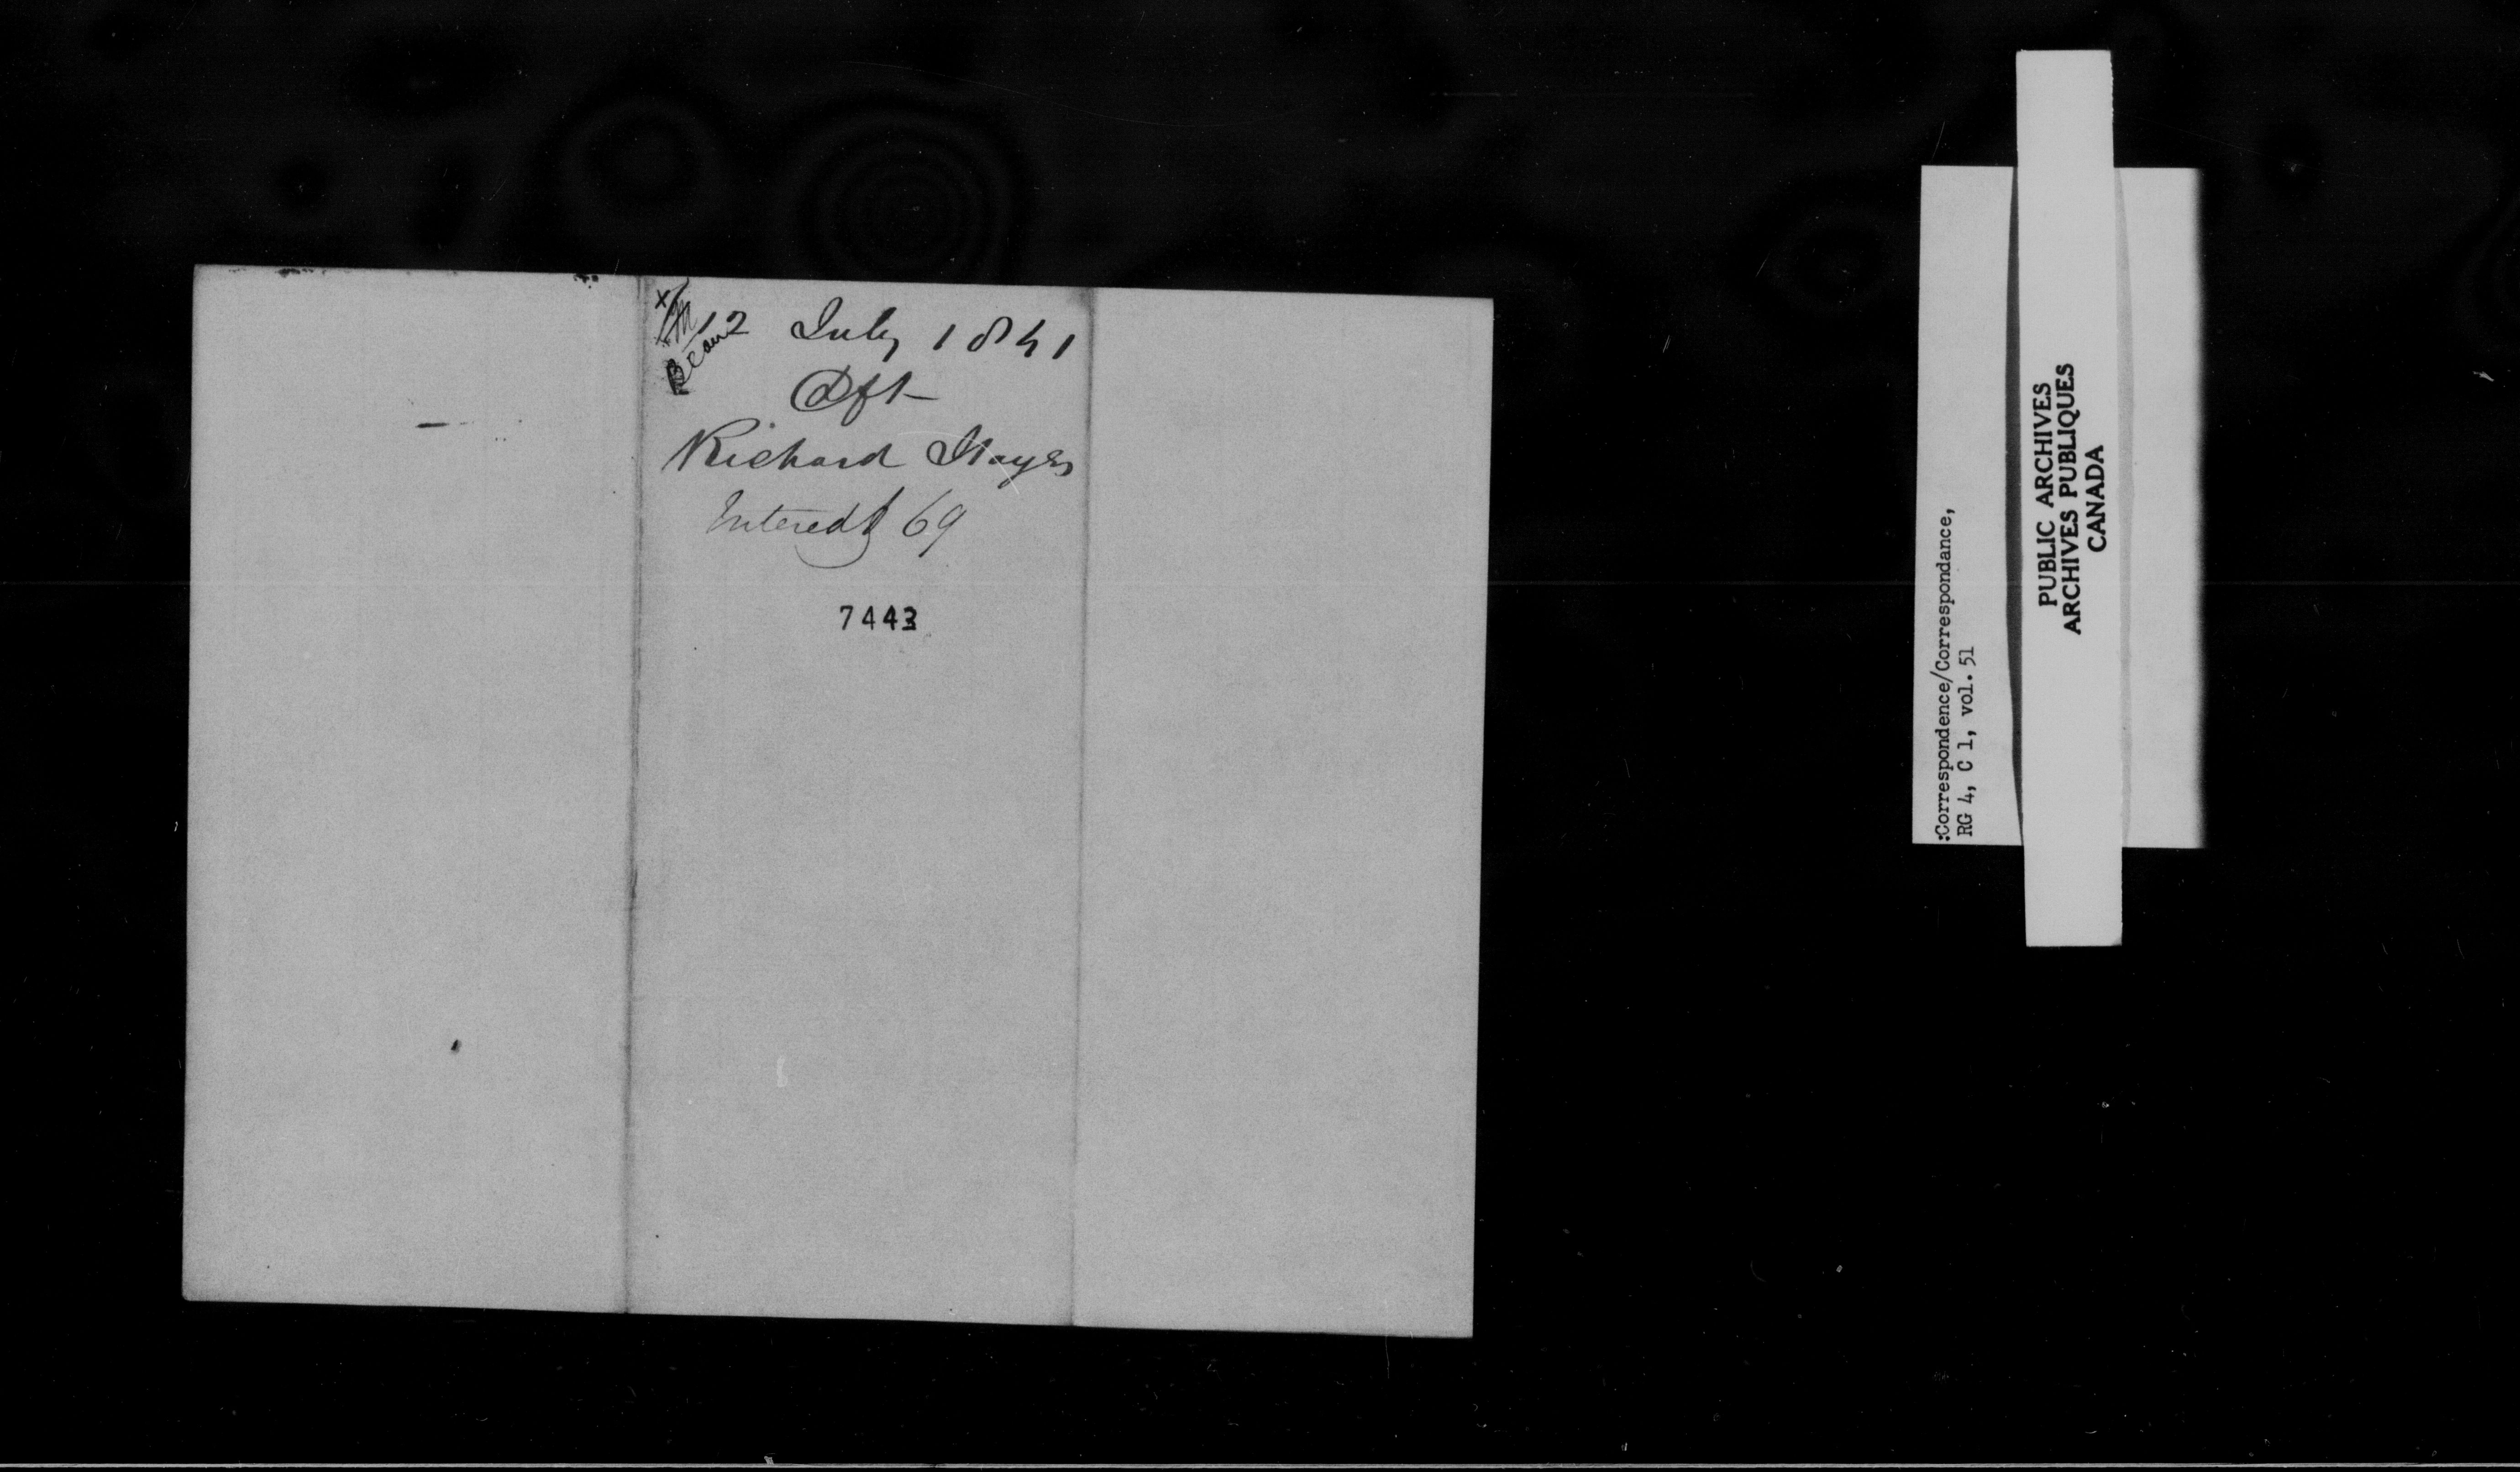 12 July 1841
Dft
Richard Hayes
Interest 69
7443
:Correspondence/Correspondance,
RG 4, C 1, vol. 51
PUBLIC ARCHIVES
ARCHIVES PUBLIQUES
CANADA